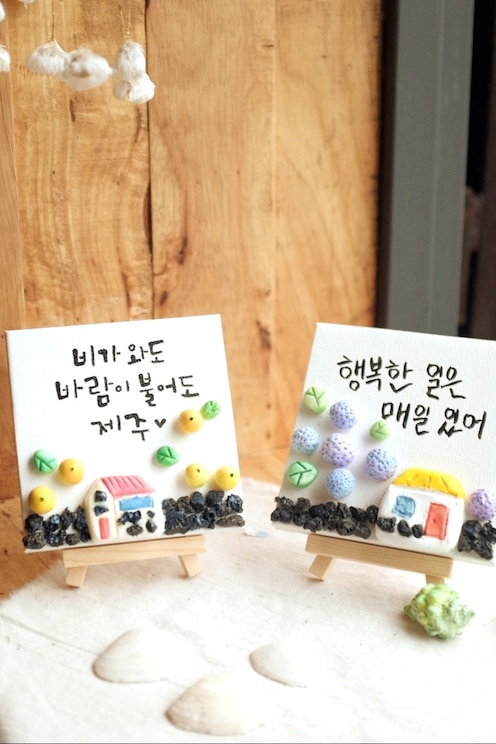 비가 와도
바람이 불어도
제주♥
행복한 일은
매일 있어